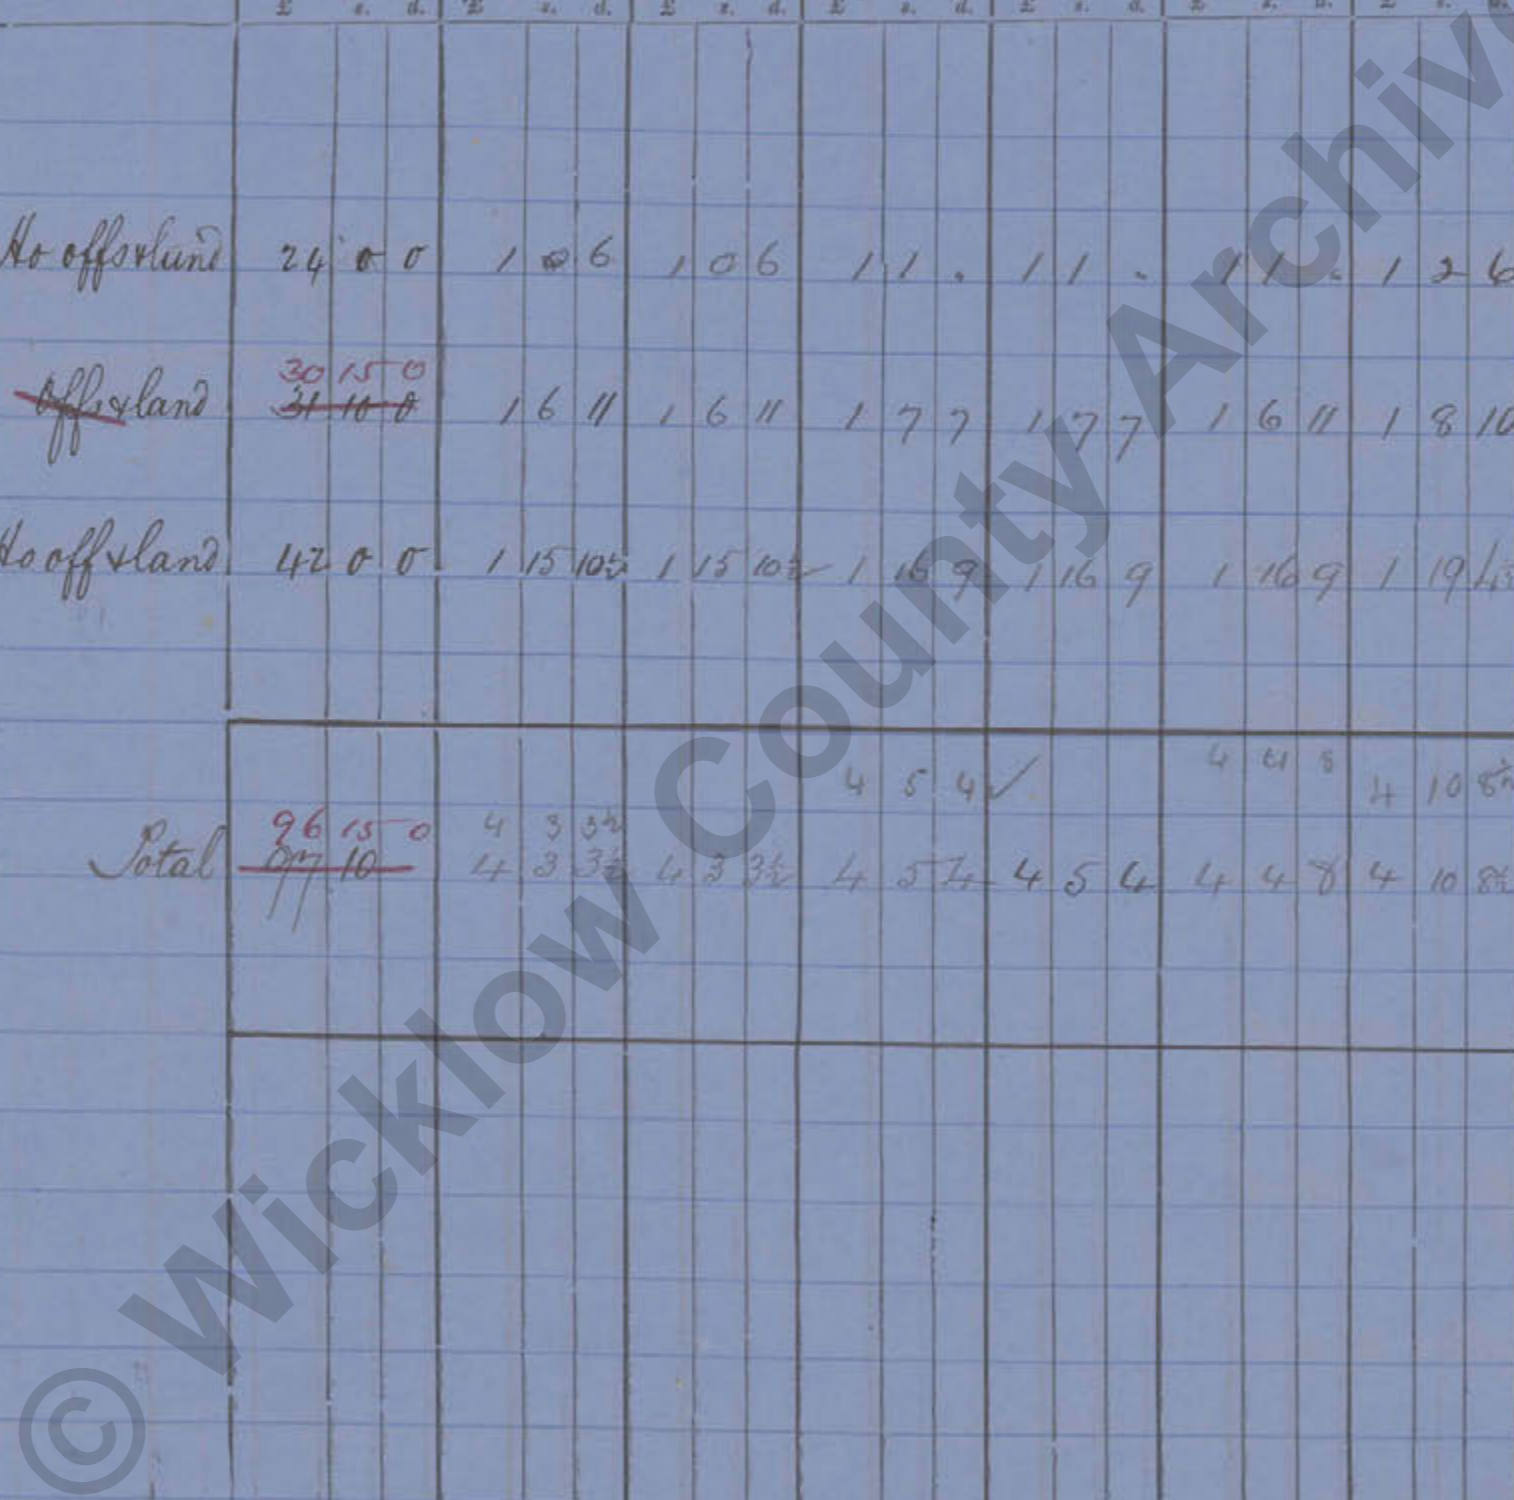 £ s. d. £ s. d. £ s. d. £ s. d. £ s. d. £ s. d. £ s. d.
Ho offs & land 24 0 0 1 0 6 1 0 6 1 1 . 1 1 . 1 1 . 1 2 6
30 15 0
offs & land 31 10 0 1 6 11 1 6 11 1 7 7 1 7 7 1 6 11 1 8 10
Ho off & land 42 0 0 1 15 10½ 1 15 10½ 1 16 9 1 16 9 1 16 9 1 19 4½
4 5 4 ✓ 4 4 8 4 10 8½
96 15 0 4 3 3½
Total 97 10 4 3 3½ 4 3 3½ 4 5 4 4 5 4 4 4 8 4 10 8½
© Wicklow County Archive